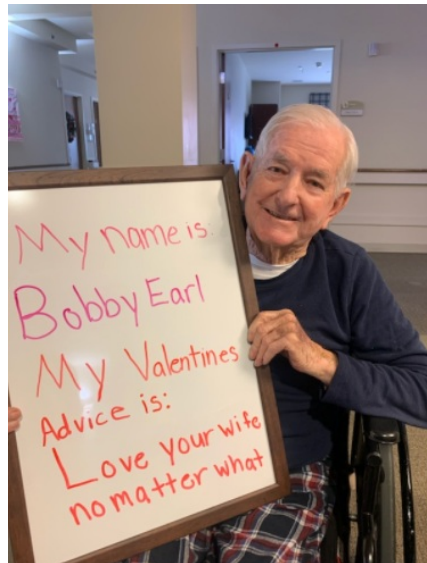 My name is:
Bobby Earl
My Valentines
Advice is:
Love your wife
no matter what